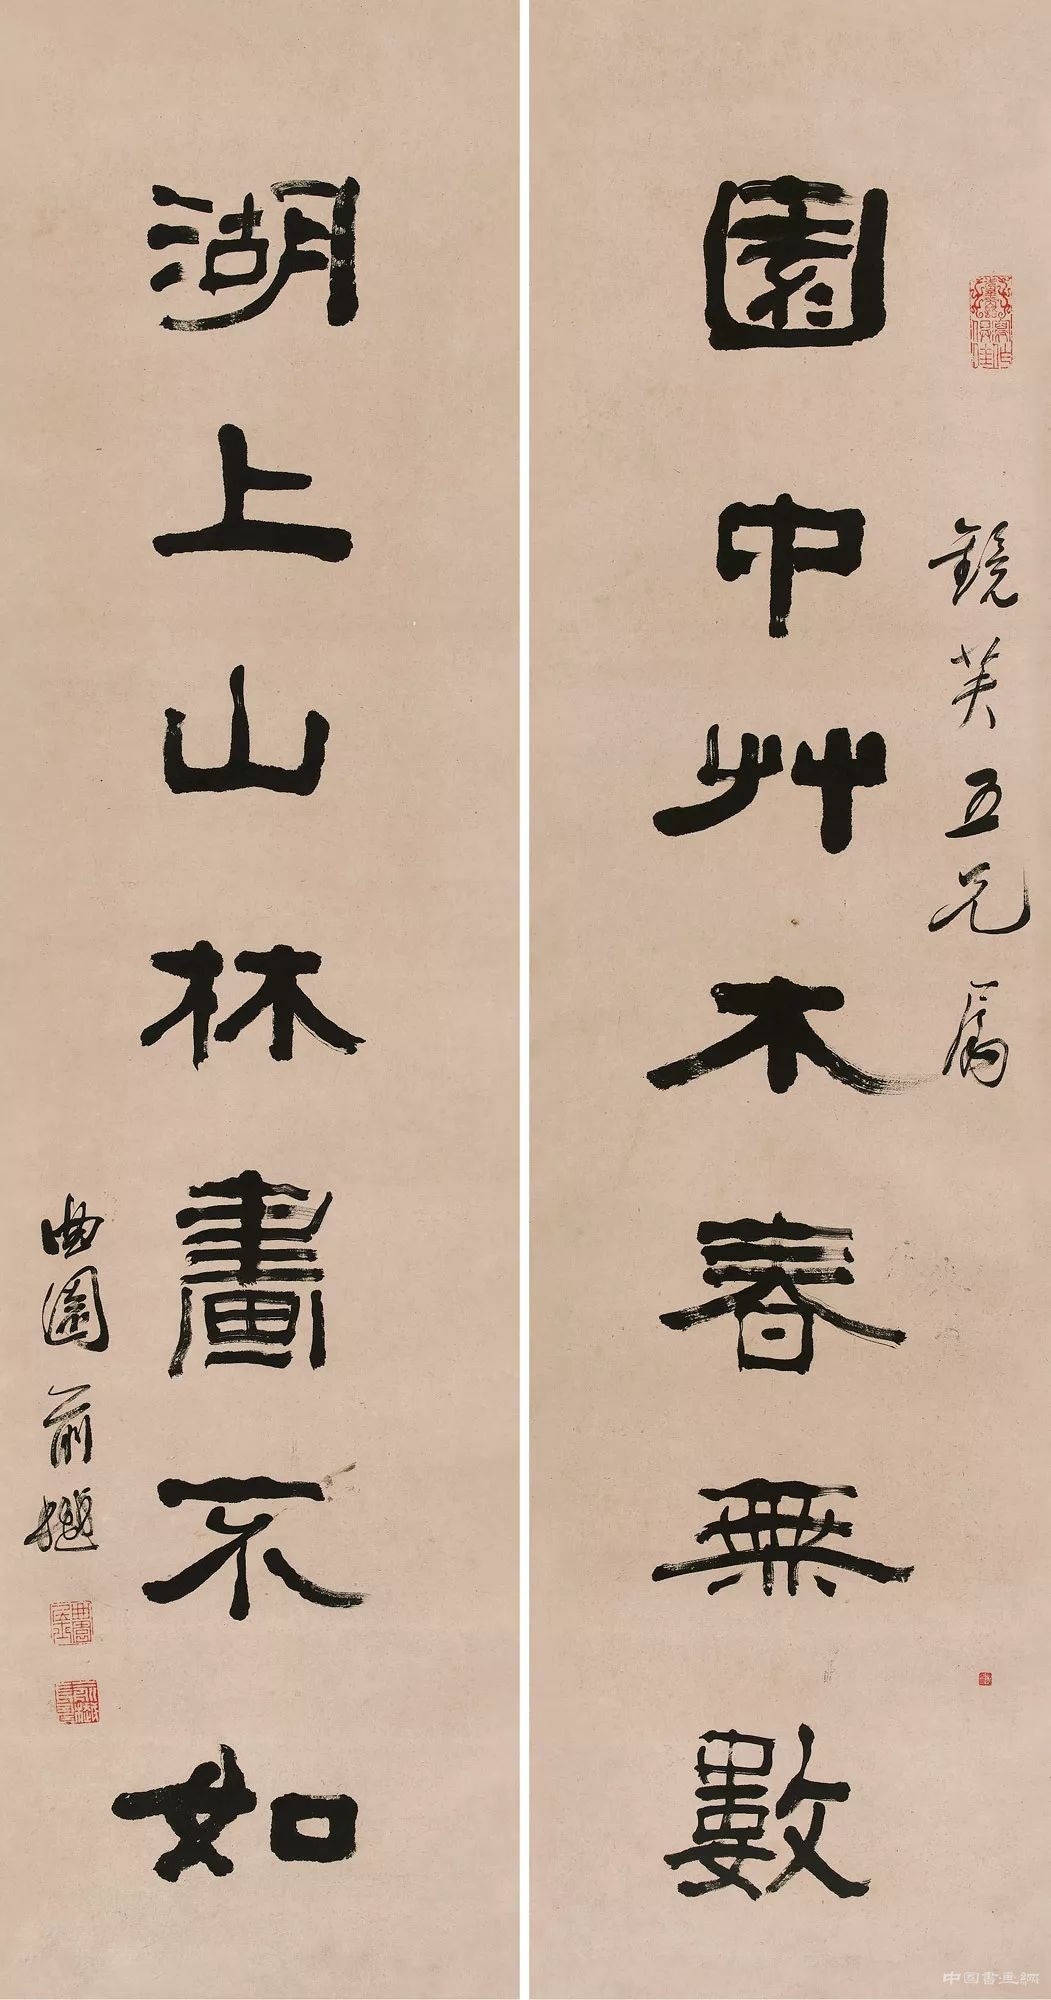 園中艸木春無數
鏡芙五兄屬
湖上山林畫不如
曲園俞樾
中国書画網